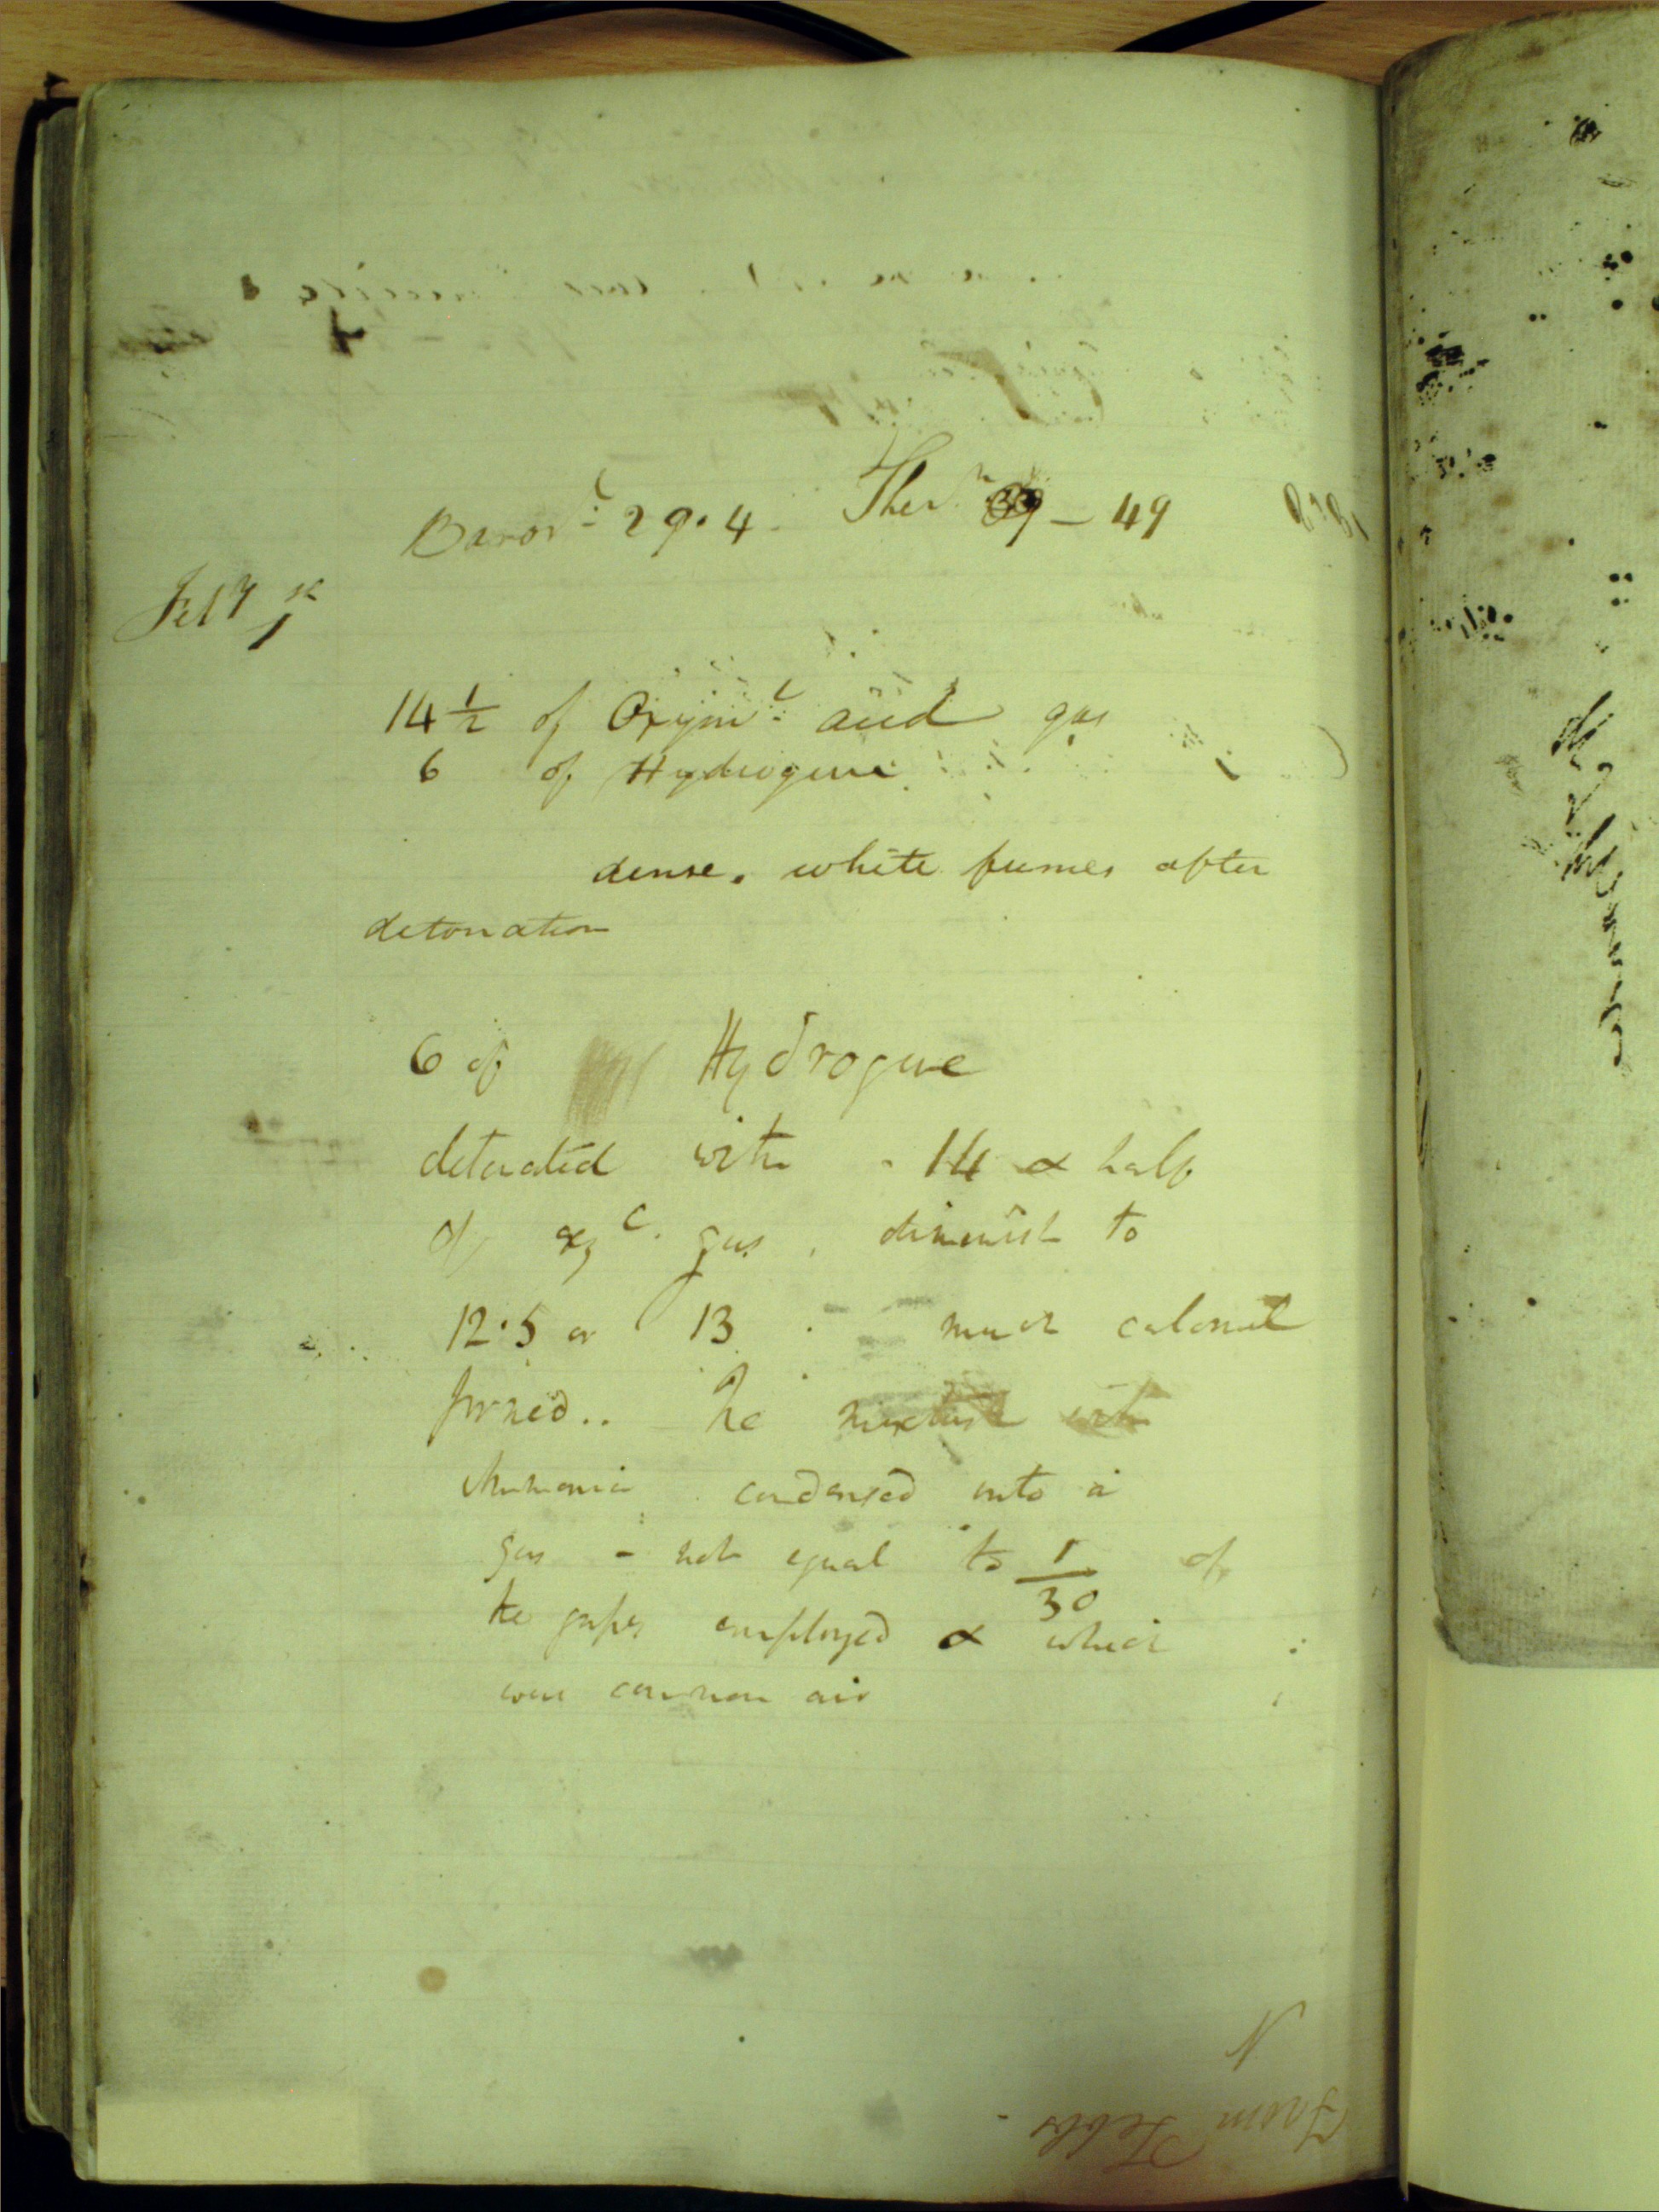 Barom.r 29.4 Ther.m 39 – 49
Feb.y 1st
14 1/2 of Oxym.c acid gas
6 of Hydrogene
dense. white fumes after
detonation
6 of Hydrogene
detonated with 14 & half
of oxy c. gas, diminish to
12.5 or 13 . much calomel
formed.. The mixture with
Ammonia condensed into a
gas - not equal to 1/30 of
the gases employed & which
was common air
From Feb